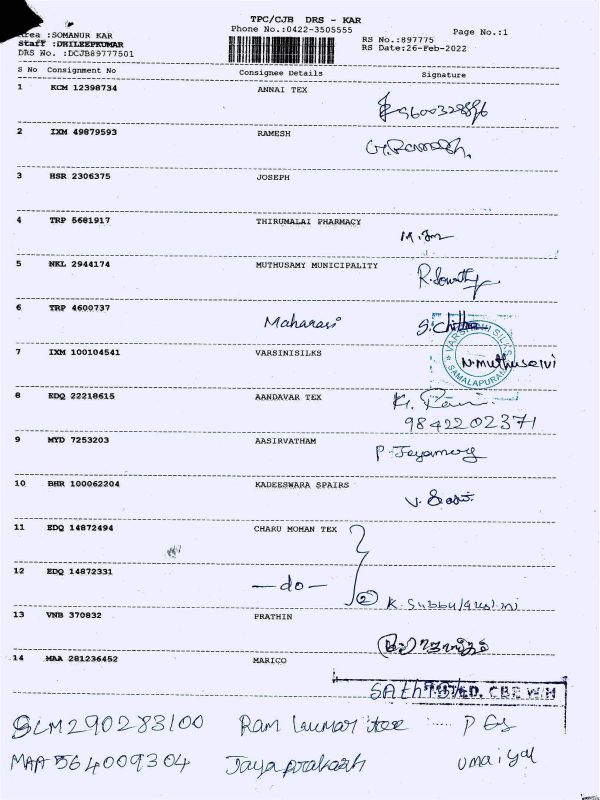 TPC/CJB DRS - KAR
Area :SOMANUR KAR Phone No.:0422-3505555 Page No.:1
Staff :DHILEEPKUMAR RS No.:897775
DRS No. :DCJB89777501 RS Date:26-Feb-2022
S No Consignment No Consignee Details Signature
1 KCM 12398734 ANNAI TEX
2 IXM 49879593 RAMESH G.Ramesh
3 HSR 2306375 JOSEPH
4 TRP 5681917 THIRUMALAI PHARMACY
5 NKL 2944174 MUTHUSAMY MUNICIPALITY
6 TRP 4600737 Maharasi S.Chithra
7 IXM 100104541 VARSINISILKS N.muthuselvi
VARSHINI SILKS
SAMALAPURAM
8 EDQ 22218615 AANDAVAR TEX K. Rani
9842202371
9 MYD 7253203 AASIRVATHAM
10 BHR 100062204 KADEESWARA SPAIRS
11 EDQ 14872494 CHARU MOHAN TEX
12 EDQ 14872331 -do- ② K. Subbulakshmi
13 VNB 370832 PRATHIN
14 MAA 281236452 MARICO
Sathish LTD. CBE W/H
SLM290283100 Ram kumar tex
MAA 564009304 Jayaprakash umaiyal